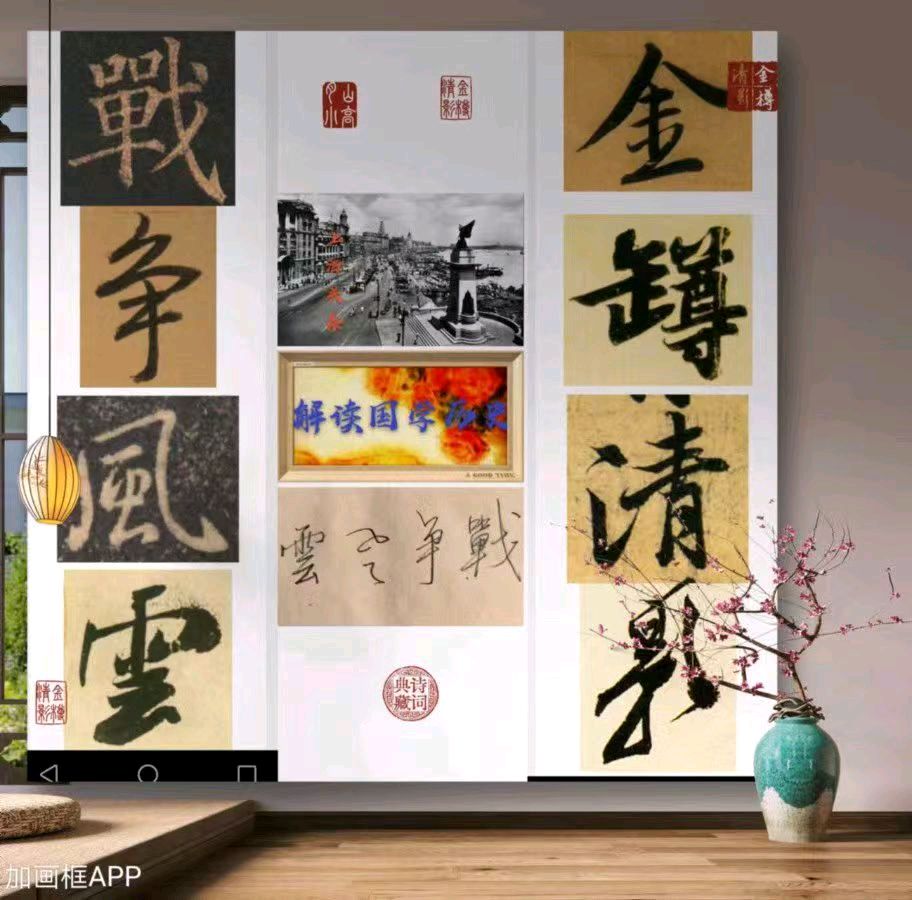 戰
争
風
雲
金樽清影
山高月小
金樽清影
上海
解读国学历史
A GOOD TIME
戰争风雲
诗词典藏
金
罇
清
影
金樽清影
加画框APP